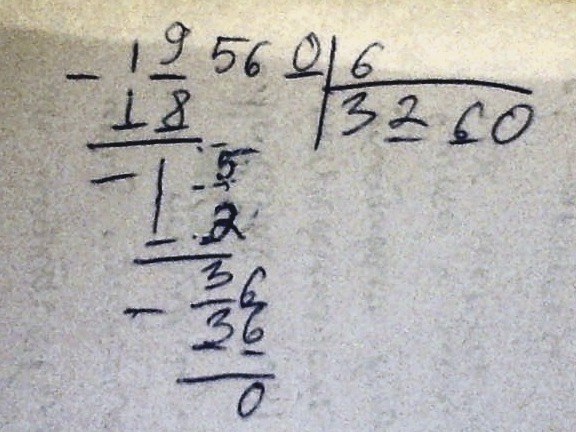 - 19560 | 6
18 | 3260
- 15
12
- 36
36
0